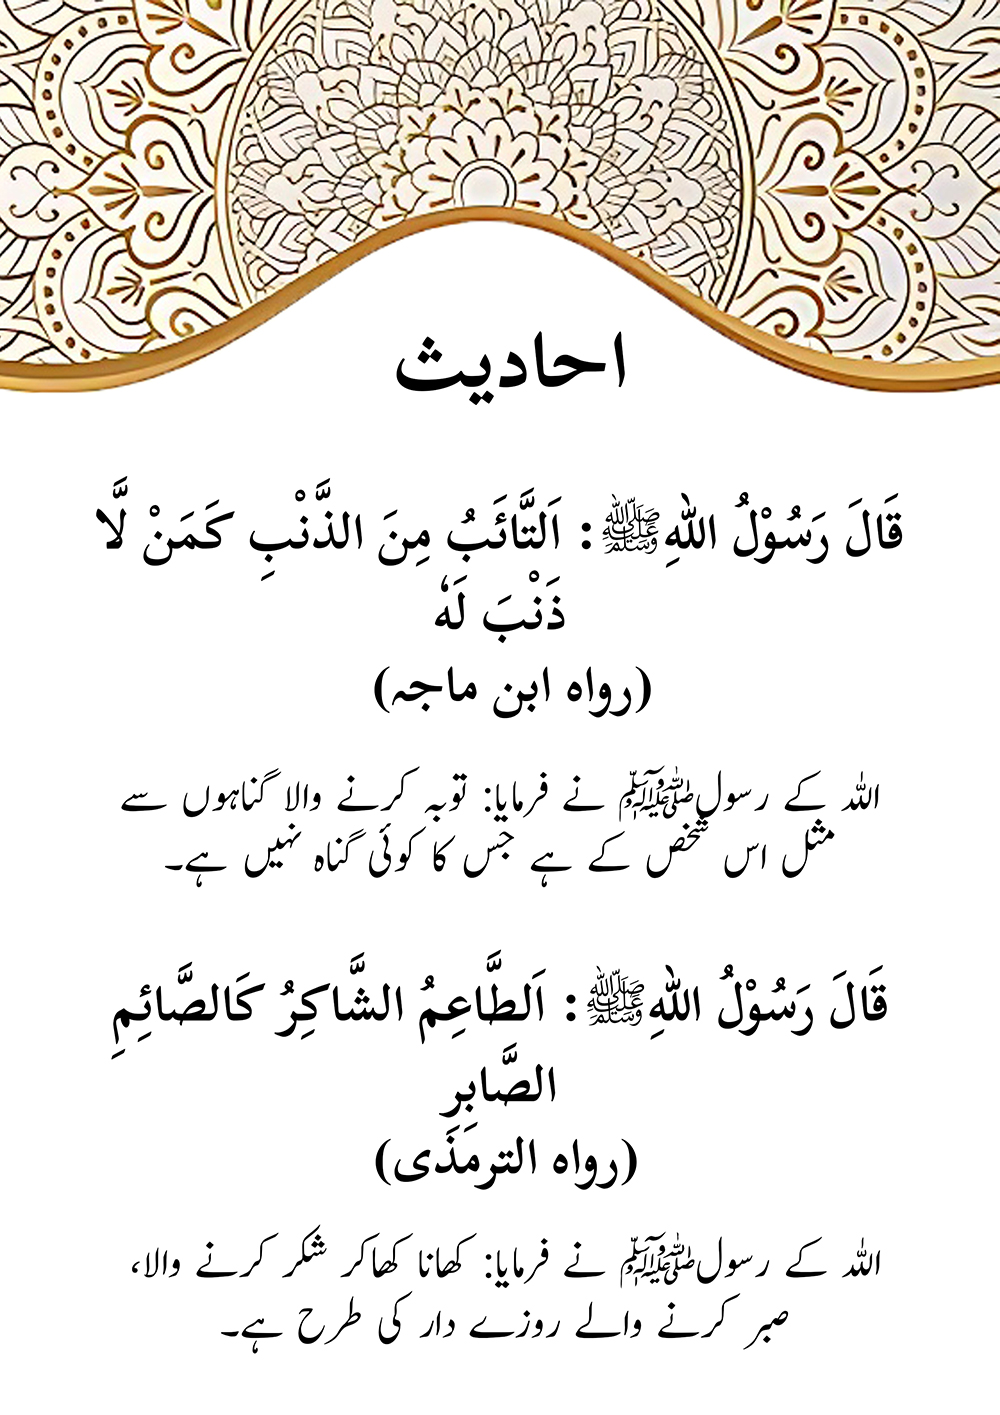 احادیث
قَالَ رَسُوْلُ اللهِﷺ: اَلتَّائَبُ مِنَ الذَّنْبِ كَمَنْ لَّا
ذَنْبَ لَهٗ
(رواه ابن ماجہ)
اللہ کے رسولﷺ نے فرمایا: توبہ کرنے والا گناہوں سے
مثل اس شخص کے ہے جس کا کوئی گناہ نہیں ہے۔
قَالَ رَسُوْلُ اللهِﷺ: اَلطَّاعِمُ الشَّاكِرُ كَالصَّائِمِ
الصَّابِرِ
(رواه الترمَذَى)
اللہ کے رسولﷺ نے فرمایا: کھانا کھاکر شکر کرنے والا،
صبر کرنے والے روزے دار کی طرح ہے۔